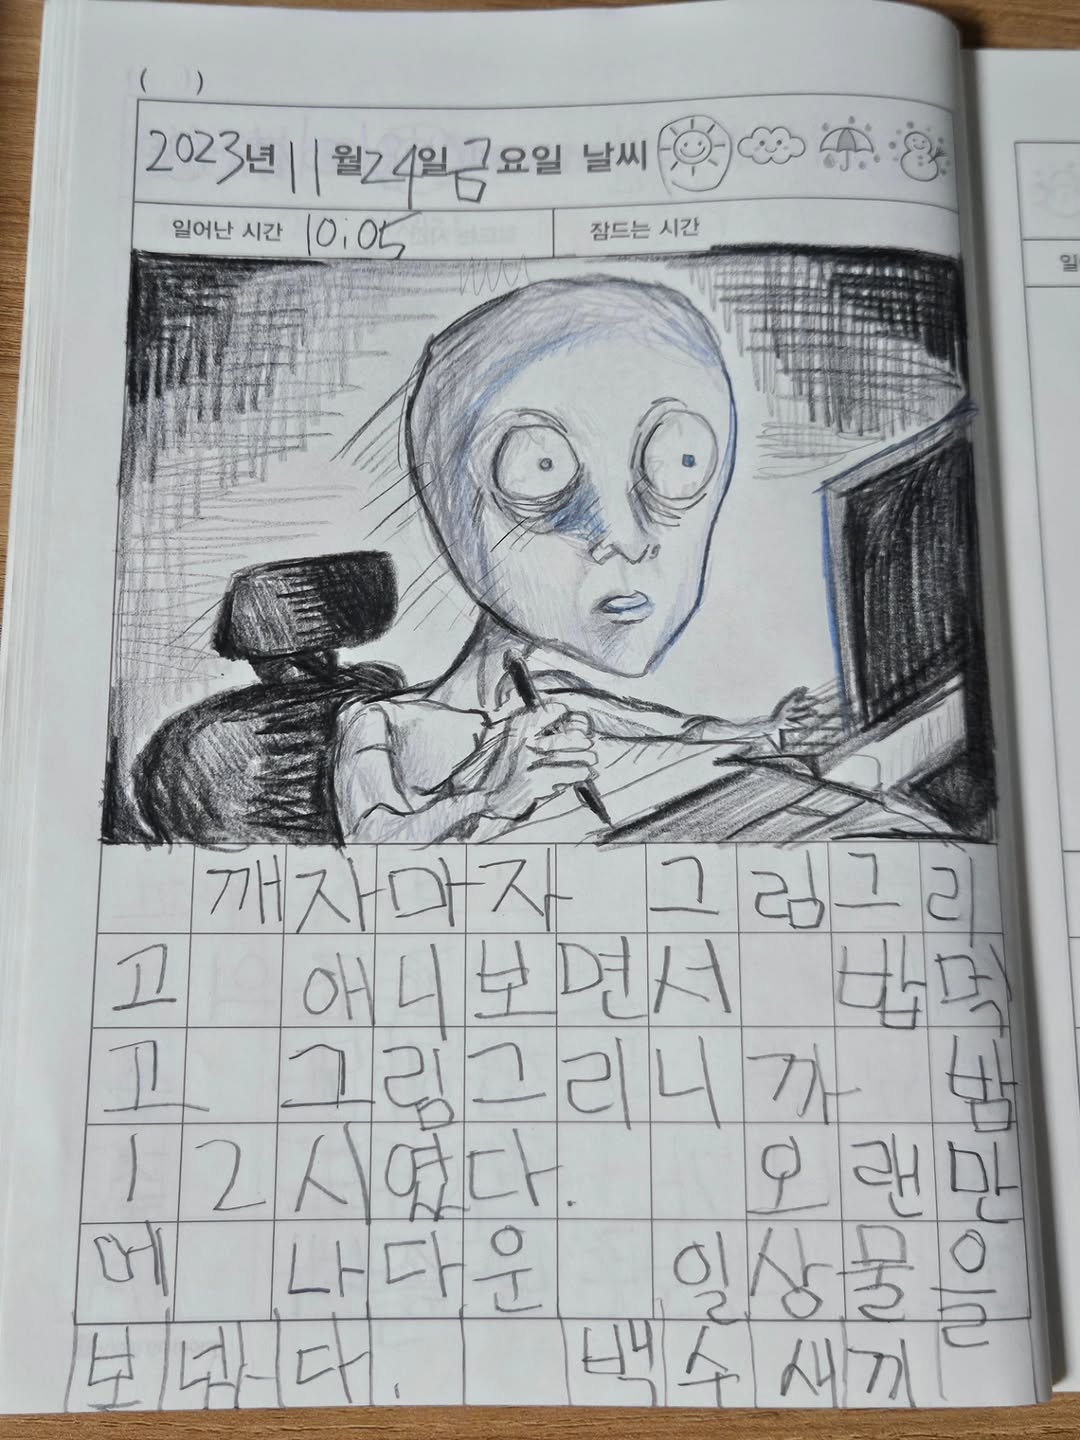 ( )
2023년 11월 24일 금요일 날씨
일어난 시간 10:05 잠드는 시간
깨자마자 그림그리
고 애니보면서 밥먹
고 그림그리니까 밤
12시였다. 오랜만
메 나다운 일상물을
보냈다. 백수새끼